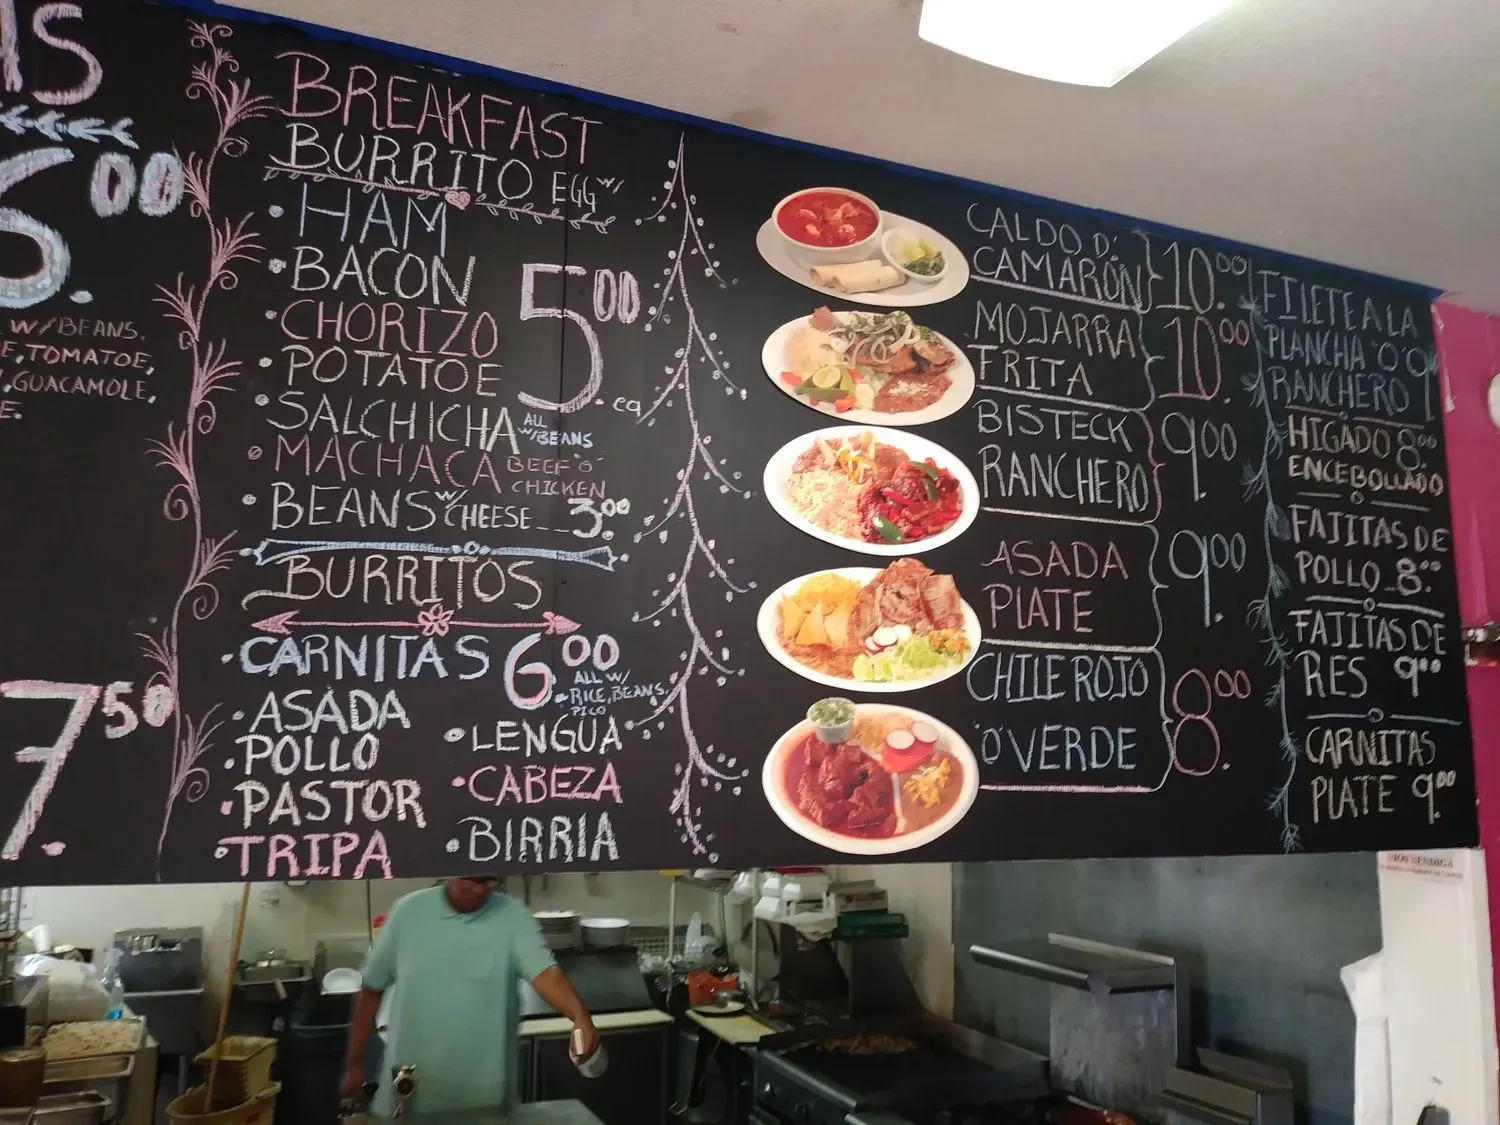 AS
6.00
W/BEANS.
TOMATOE,
GUACAMOLE,
7.50
BREAKFAST
BURRITO EGG W/
• HAM
• BACON
• CHORIZO
• POTATOE
• SALCHICHA
• MACHACA BEEF "O" CHICKEN
5.00 ea
ALL W/BEANS
• BEANS W/ CHEESE__3.00
BURRITOS
• CARNITAS
• ASADA
• POLLO
• PASTOR
• TRIPA
6.00
ALL W/
RICE, BEANS,
PICO
• LENGUA
• CABEZA
• BIRRIA
CALDO D'
CAMARÓN 10.00
MOJARRA
FRITA 10.00
BISTECK
RANCHERO 9.00
ASADA
PLATE 9.00
CHILE ROJO
"O" VERDE 8.00
FILETE A LA
PLANCHA "O"
RANCHERO
HIGADO 8.00
ENCEBOLLADO
FAJITAS DE
POLLO_8.00
FAJITAS DE
RES 9.00
CARNITAS
PLATE 9.00